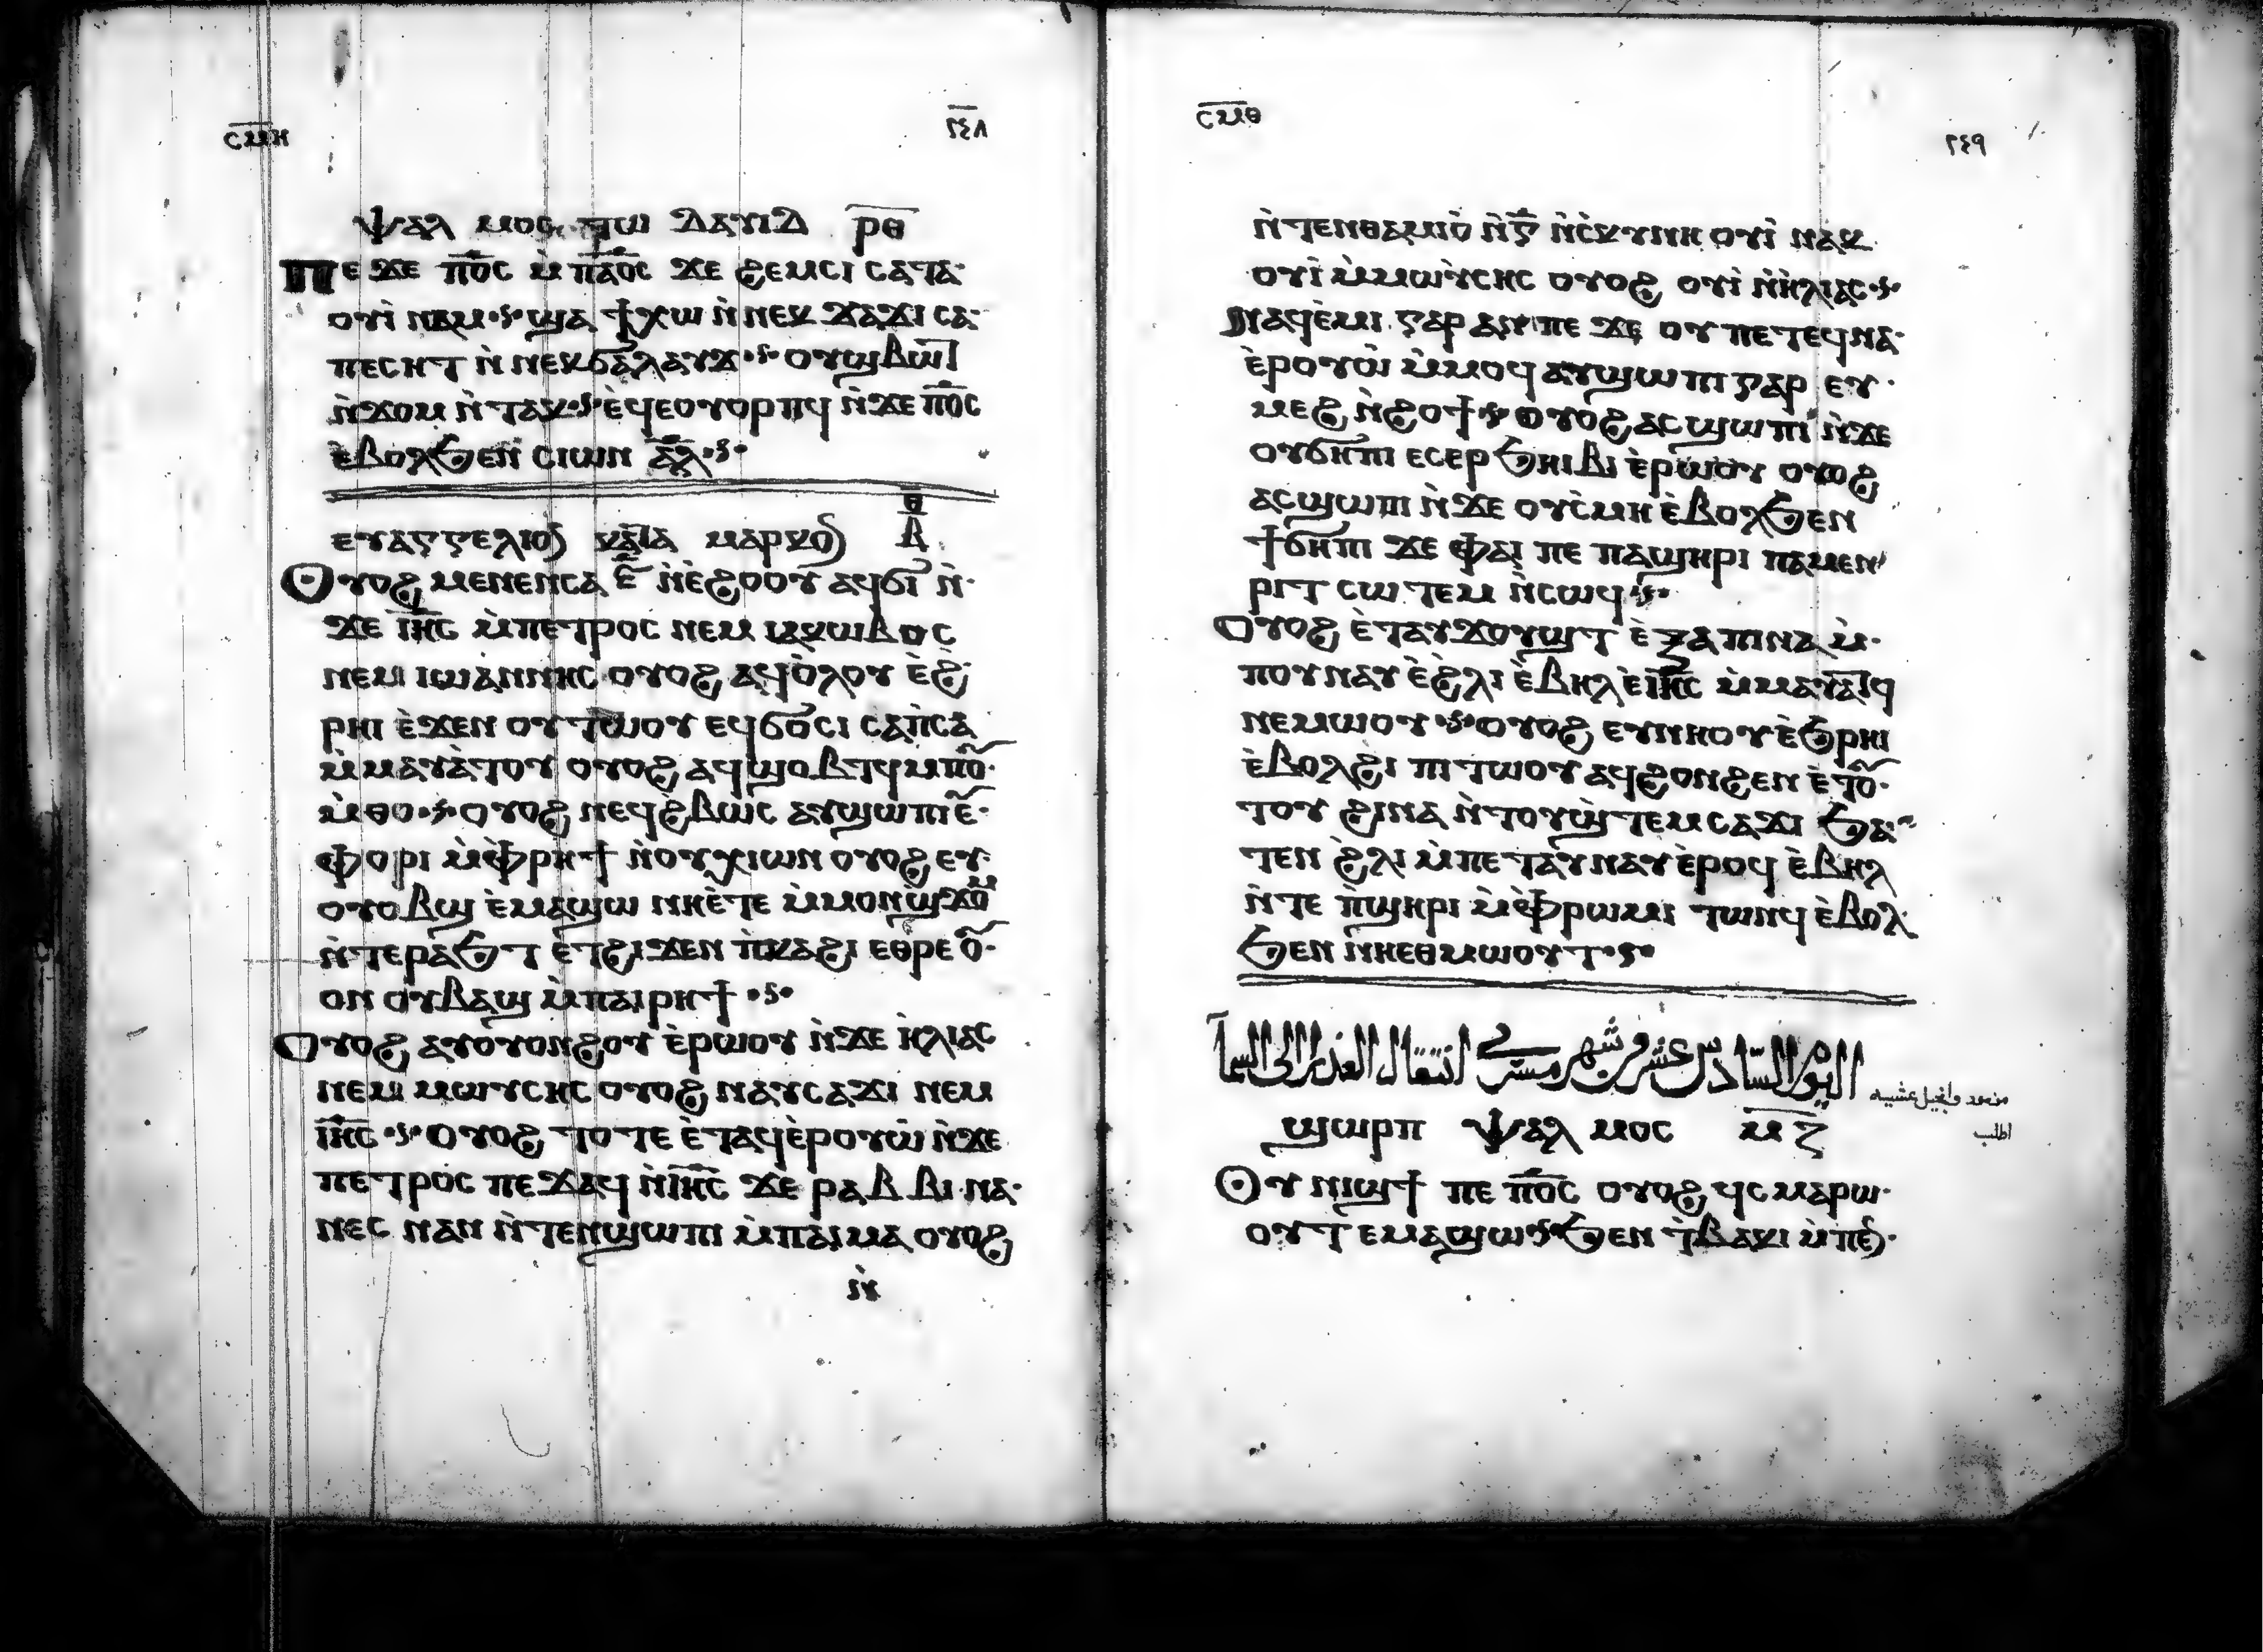 ⲥⲙⲏ ٢٤٨
ⲯⲁⲗ ⲙⲟⲥ ⲧⲱ ⲇⲁⲩⲓⲇ ⲣⲑ
ⲡⲉ ϫⲉ ⲡⲟ̅ⲥ̅ ⲙ̀ ⲡⲁⲟ̅ⲥ̅ ϫⲉ ϩⲉⲙⲥⲓ ⲥⲁⲧⲁ·
ⲟⲩⲓ̀ ⲛⲁⲙ ϣⲁ ϯⲭⲱ ⲛ̀ ⲛⲉⲕ ϫⲁϫⲓ ⲥⲁ·
ⲡⲉⲥⲏⲧ ⲛ̀ ⲛⲉⲕϭⲁⲗⲁⲩϫ ⲟⲩϣⲃⲱⲧ
ⲛ̀ϫⲟⲙ ⲛ̀ⲧⲁⲕ ⲉ̀ϥⲉⲟⲩⲟⲣⲡϥ ⲛ̀ϫⲉ ⲡⲟ̅ⲥ̅
ⲉ̀ⲃⲟⲗϧⲉⲛ ⲥⲓⲱⲛ ⲁ̅ⲗ̅
ⲉⲩⲁⲅⲅⲉⲗⲓⲟⲛ ⲕⲁⲧⲁ ⲙⲁⲣⲕⲟⲛ ⲑ ⲃ
ⲟⲩⲟϩ ⲙⲉⲛⲉⲛⲥⲁ ⲋ̅ ⲛ̀ⲉ̀ϩⲟⲟⲩ ⲁϥϭⲓ ⲛ̀·
ϫⲉ ⲓⲏ̅ⲥ̅ ⲙ̀ⲡⲉⲧⲣⲟⲥ ⲛⲉⲙ ⲓⲁⲕⲱⲃⲟⲥ
ⲛⲉⲙ ⲓⲱⲁ̀ⲛⲛⲏⲥ ⲟⲩⲟϩ ⲁϥⲟ̀ⲗⲟⲩ ⲉ̀ϩ̀
ⲣⲏⲓ ⲉ̀ϫⲉⲛ ⲟⲩⲧⲱⲟⲩ ⲉϥϭⲟⲥⲓ ⲥⲁⲡ̀ⲥⲁ
ⲙ̀ⲙⲁⲩⲁ̀ⲧⲟⲩ ⲟⲩⲟϩ ⲁϥϣⲟⲃⲧϥ ⲙⲡⲟⲩ·
ⲙ̀ⲑⲟ ⲟⲩⲟϩ ⲛⲉϥϩ̀ⲃⲱⲥ ⲁⲩϣⲱⲡⲓ ⲉⲩ·
ⲫⲟⲣⲓ ⲙ̀ⲫ̀ⲣⲏϯ ⲛ̀ⲟⲩⲭⲓⲱⲛ ⲟⲩⲟϩ ⲉⲩ·
ⲟⲩⲟⲃϣ ⲉ̀ⲙⲁϣⲱ ⲛⲏⲉ̀ⲧⲉ ⲙ̀ⲙⲟⲛϣ̀ϫⲟⲙ
ⲛ̀ⲧⲉⲣⲁϧⲧ ⲉⲧϩⲓϫⲉⲛ ⲡ̀ⲕⲁϩⲓ ⲉⲑⲣⲉ ⲟⲩ·
ⲟⲛ ⲟⲩⲃⲁϣ ⲙ̀ⲡⲁⲓⲣⲏϯ
ⲟⲩⲟϩ ⲁⲩⲟⲩⲟⲛϩⲟⲩ ⲉ̀ⲣⲱⲟⲩ ⲛ̀ϫⲉ ⲏ̀ⲗⲓⲁⲥ
ⲛⲉⲙ ⲙⲱⲩⲥⲏⲥ ⲟⲩⲟϩ ⲛⲁⲩⲥⲁϫⲓ ⲛⲉⲙ
ⲓⲏ̅ⲥ̅ ⲟⲩⲟϩ ⲧⲟⲧⲉ ⲉ̀ⲧⲁϥⲉ̀ⲣⲟⲩⲱ̀ ⲛ̀ϫⲉ
ⲡⲉⲧⲣⲟⲥ ⲡⲉϫⲁϥ ⲛ̀ⲓⲏ̅ⲥ̅ ϫⲉ ⲣⲁⲃⲃⲓ ⲛⲁ·
ⲛⲉⲥ ⲛⲁⲛ ⲛ̀ⲧⲉⲛϣⲱⲡⲓ ⲙ̀ⲡⲁⲓⲙⲁ ⲟⲩⲟϩ
ⲥⲙⲑ ٢٤٩
ⲛ̀ⲧⲉⲛⲑⲁⲙⲓⲟ̀ ⲛ̀ⲅ̅ ⲛ̀ⲥ̀ⲕⲩⲛⲏ ⲟⲩⲓ̀ ⲛⲁⲕ
ⲟⲩⲓ̀ ⲙ̀ⲙⲱⲩ̀ⲥⲏⲥ ⲟⲩⲟϩ ⲟⲩⲓ̀ ⲛ̀ⲏ̀ⲗⲓⲁⲥ
ⲛⲁϥⲉ̀ⲙⲓ ⲅⲁⲣ ⲁⲛ ⲡⲉ ϫⲉ ⲟⲩ ⲡⲉⲧⲉϥⲛⲁ·
ⲉ̀ⲣⲟⲩⲱ̀ ⲙ̀ⲙⲟϥ ⲁⲩϣⲱⲡⲓ ⲅⲁⲣ ⲉⲩ·
ⲙⲉϩ ⲛ̀ϩⲟϯ ⲟⲩⲟϩ ⲁⲥϣⲱⲡⲓ ⲛ̀ϫⲉ
ⲟⲩϭⲏⲡⲓ ⲉⲥⲉⲣϧⲏⲓⲃⲓ ⲉ̀ⲣⲱⲟⲩ ⲟⲩⲟϩ
ⲁⲥϣⲱⲡⲓ ⲛ̀ϫⲉ ⲟⲩⲥ̀ⲙⲏ ⲉ̀ⲃⲟⲗϧⲉⲛ
ϯϭⲏⲡⲓ ϫⲉ ⲫⲁⲓ ⲡⲉ ⲡⲁϣⲏⲣⲓ ⲡⲁⲙⲉⲛ
ⲣⲓⲧ ⲥⲱⲧⲉⲙ ⲛ̀ⲥⲱϥ
ⲟⲩⲟϩ ⲉ̀ⲧⲁⲩϫⲟⲩϣⲧ ⲉ̀ⲝⲁⲡⲓⲛⲁ ⲙ̀·
ⲡⲟⲩⲛⲁⲩ ⲉ̀ϩ̀ⲗⲓ ⲉ̀ⲃⲏⲗ ⲉ̀ⲓⲏ̅ⲥ̅ ⲙ̀ⲙⲁⲩⲁⲧϥ
ⲛⲉⲙⲱⲟⲩ ⲟⲩⲟϩ ⲉⲩⲛⲏⲟⲩ ⲉ̀ϧⲣⲏⲓ
ⲉ̀ⲃⲟⲗϩⲓ ⲡⲓⲧⲱⲟⲩ ⲁϥϩⲟⲛϩⲉⲛ ⲉ̀ⲧⲟ·
ⲧⲟⲩ ϩⲓⲛⲁ ⲛ̀ⲧⲟⲩϣ̀ⲧⲉⲙⲥⲁϫⲓ ϧⲁ·
ⲧⲉⲛ ϩ̀ⲗⲓ ⲙ̀ⲡⲉⲧⲁⲩⲛⲁⲩ ⲉ̀ⲣⲟϥ ⲉ̀ⲃⲏⲗ
ⲛ̀ⲧⲉ ⲡ̀ϣⲏⲣⲓ ⲙ̀ⲫ̀ⲣⲱⲙⲓ ⲧⲱⲛϥ ⲉ̀ⲃⲟⲗ
ϧⲉⲛ ⲛⲏⲉⲑⲙⲱⲟⲩⲧ
اليوم السادس عشر من شهر مسرى انتقال العذرا الى السما
اطلب
ϣⲱⲣⲡ ⲯⲁⲗ ⲙⲟⲥ ⲙⲍ
ⲟⲩ ⲛⲓϣϯ ⲡⲉ ⲡⲟ̅ⲥ̅ ⲟⲩⲟϩ ϥⲥⲙⲁⲣⲱ·
ⲟⲩⲧ ⲉⲙⲁϣⲱ ϧⲉⲛ ⲧ̀ⲃⲁⲕⲓ ⲙ̀ⲡⲉⲛ·